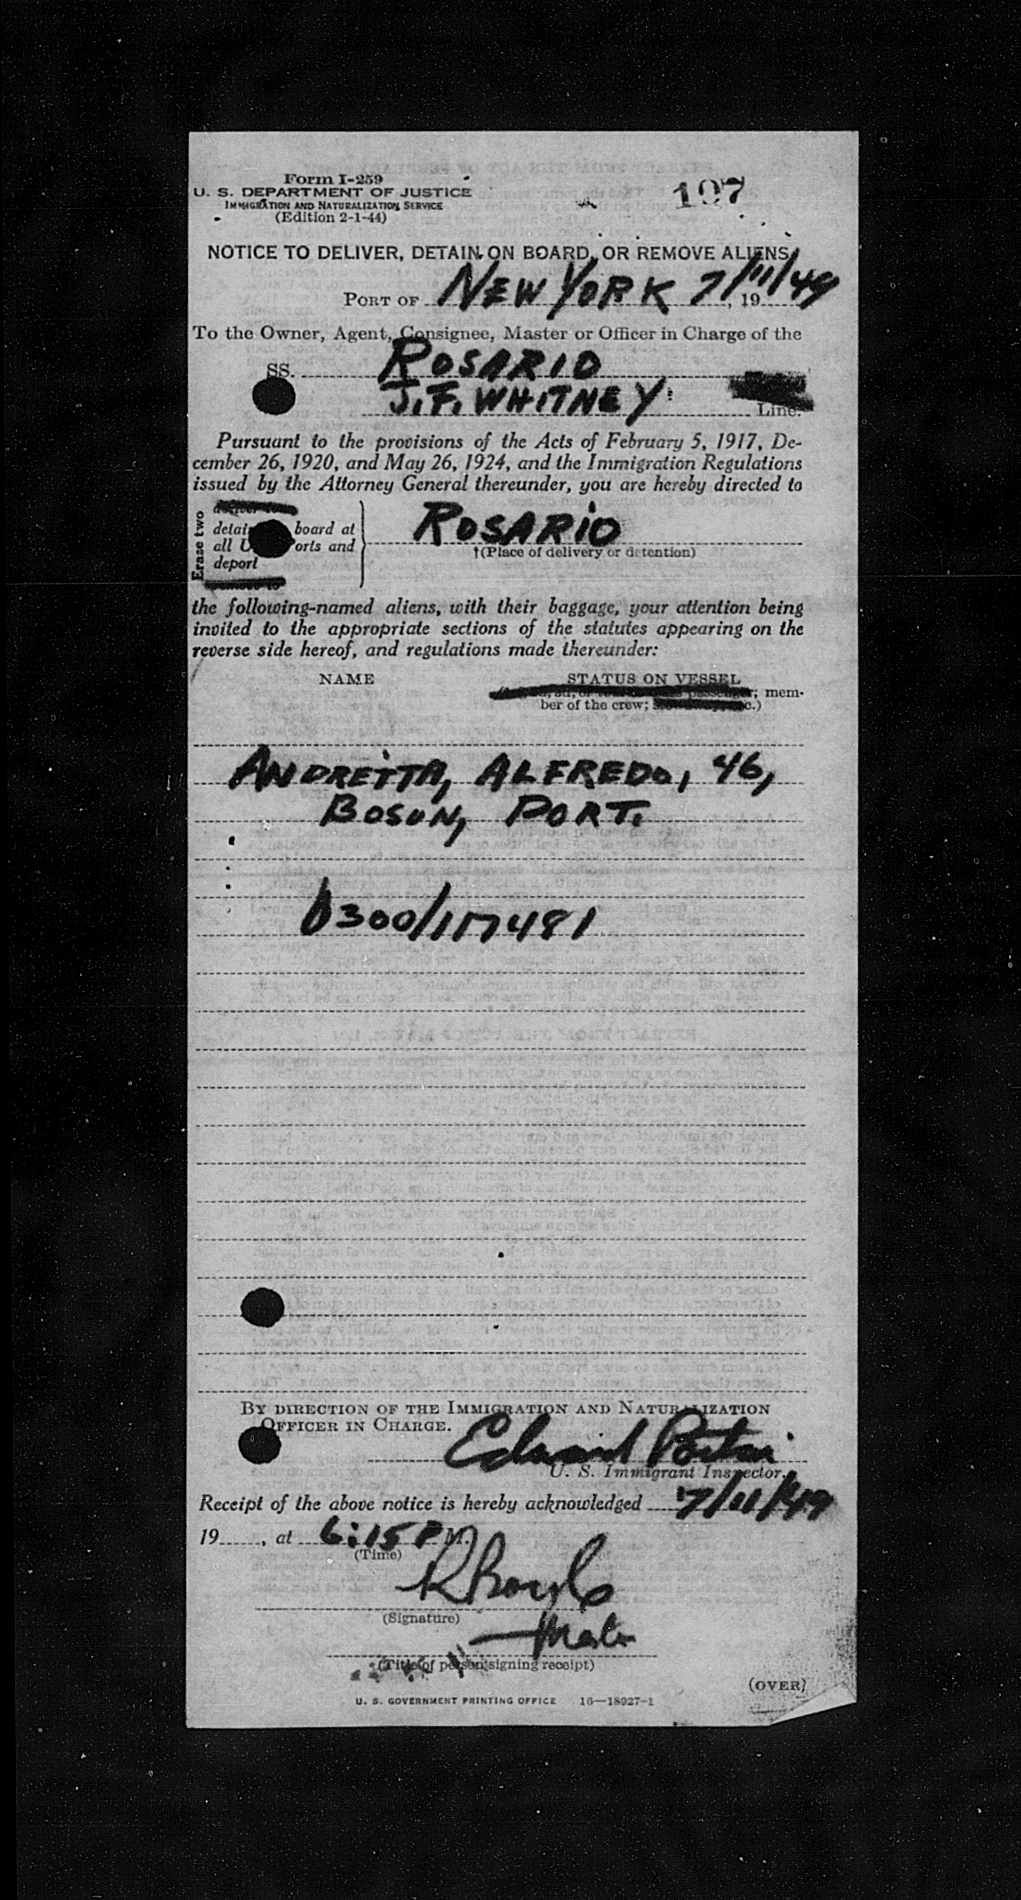 Form I-259
U. S. DEPARTMENT OF JUSTICE
IMMIGRATION AND NATURALIZATION SERVICE
(Edition 2-1-44)
107
NOTICE TO DELIVER, DETAIN ON BOARD, OR REMOVE ALIENS
PORT OF NEW YORK 7/11/49, 19
To the Owner, Agent, Consignee, Master or Officer in Charge of the
SS. ROSARIO
J.F. WHITNEY Line.
Pursuant to the provisions of the Acts of February 5, 1917, De-
cember 26, 1920, and May 26, 1924, and the Immigration Regulations
issued by the Attorney General thereunder, you are hereby directed to
Erase two
detain board at
all U orts and
deport
ROSARIO
†(Place of delivery or detention)
the following-named aliens, with their baggage, your attention being
invited to the appropriate sections of the statutes appearing on the
reverse side hereof, and regulations made thereunder:
NAME STATUS ON VESSEL
passenger; mem-
ber of the crew; c.)
ANDREITA, ALFREDO, 46,
BOSUN, PORT.
0300/117481
BY DIRECTION OF THE IMMIGRATION AND NATURALIZATION
OFFICER IN CHARGE.
Edward
U. S. Immigrant Inspector.
Receipt of the above notice is hereby acknowledged 7/11/49
19, at 6:15 P M.
(Time)
(Signature)
(Title of person signing receipt)
(OVER)
U. S. GOVERNMENT PRINTING OFFICE 16—18927-1